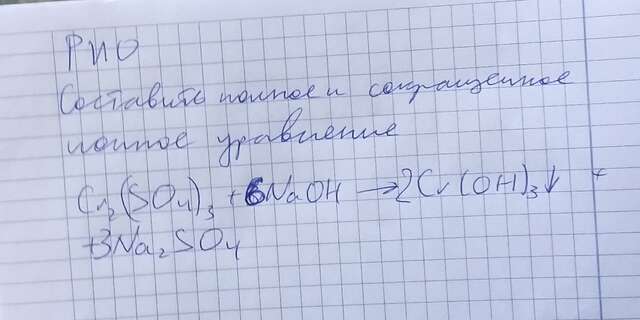 РИО
Составить полное и сокращенное
ионное уравнение
Cr₂(SO₄)₃ + 6NaOH → 2Cr(OH)₃↓ +
+3Na₂SO₄